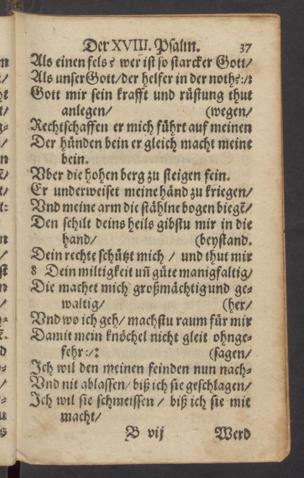 Der XVIII. Psalm. 37
Als einen fels? wer ist so starcker Gott/
Als unser Gott/der helfer in der noth?:/:
Gott mir sein krafft und rüstung thut
anlegen/ (wegen/
Rechtschaffen er mich führt auf meinen
Der hünden bein er gleich macht meine
bein.
Vber die hohen berg zu steigen fein.
Er underweiset meine händ zu kriegen/
Vnd meine arm die stählne bogen biegē/
Den schilt deins heils gibstu mir in die
hand/ (beystand.
Dein rechte schützt mich / und thut mir
8 Dein miltigkeit uñ güte manigfaltig/
Die machet mich großmächtig und ge-
waltig/ (her/
Vnd wo ich geh/ machstu raum für mir
Damit mein knöchel nicht gleit ohnge-
fehr:/: (sagen/
Ich wil den meinen feinden nun nach-
Vnd nit ablassen/ biß ich sie geschlagen/
Ich wil sie schmeissen / biß ich sie mit
macht/
B vij Werd